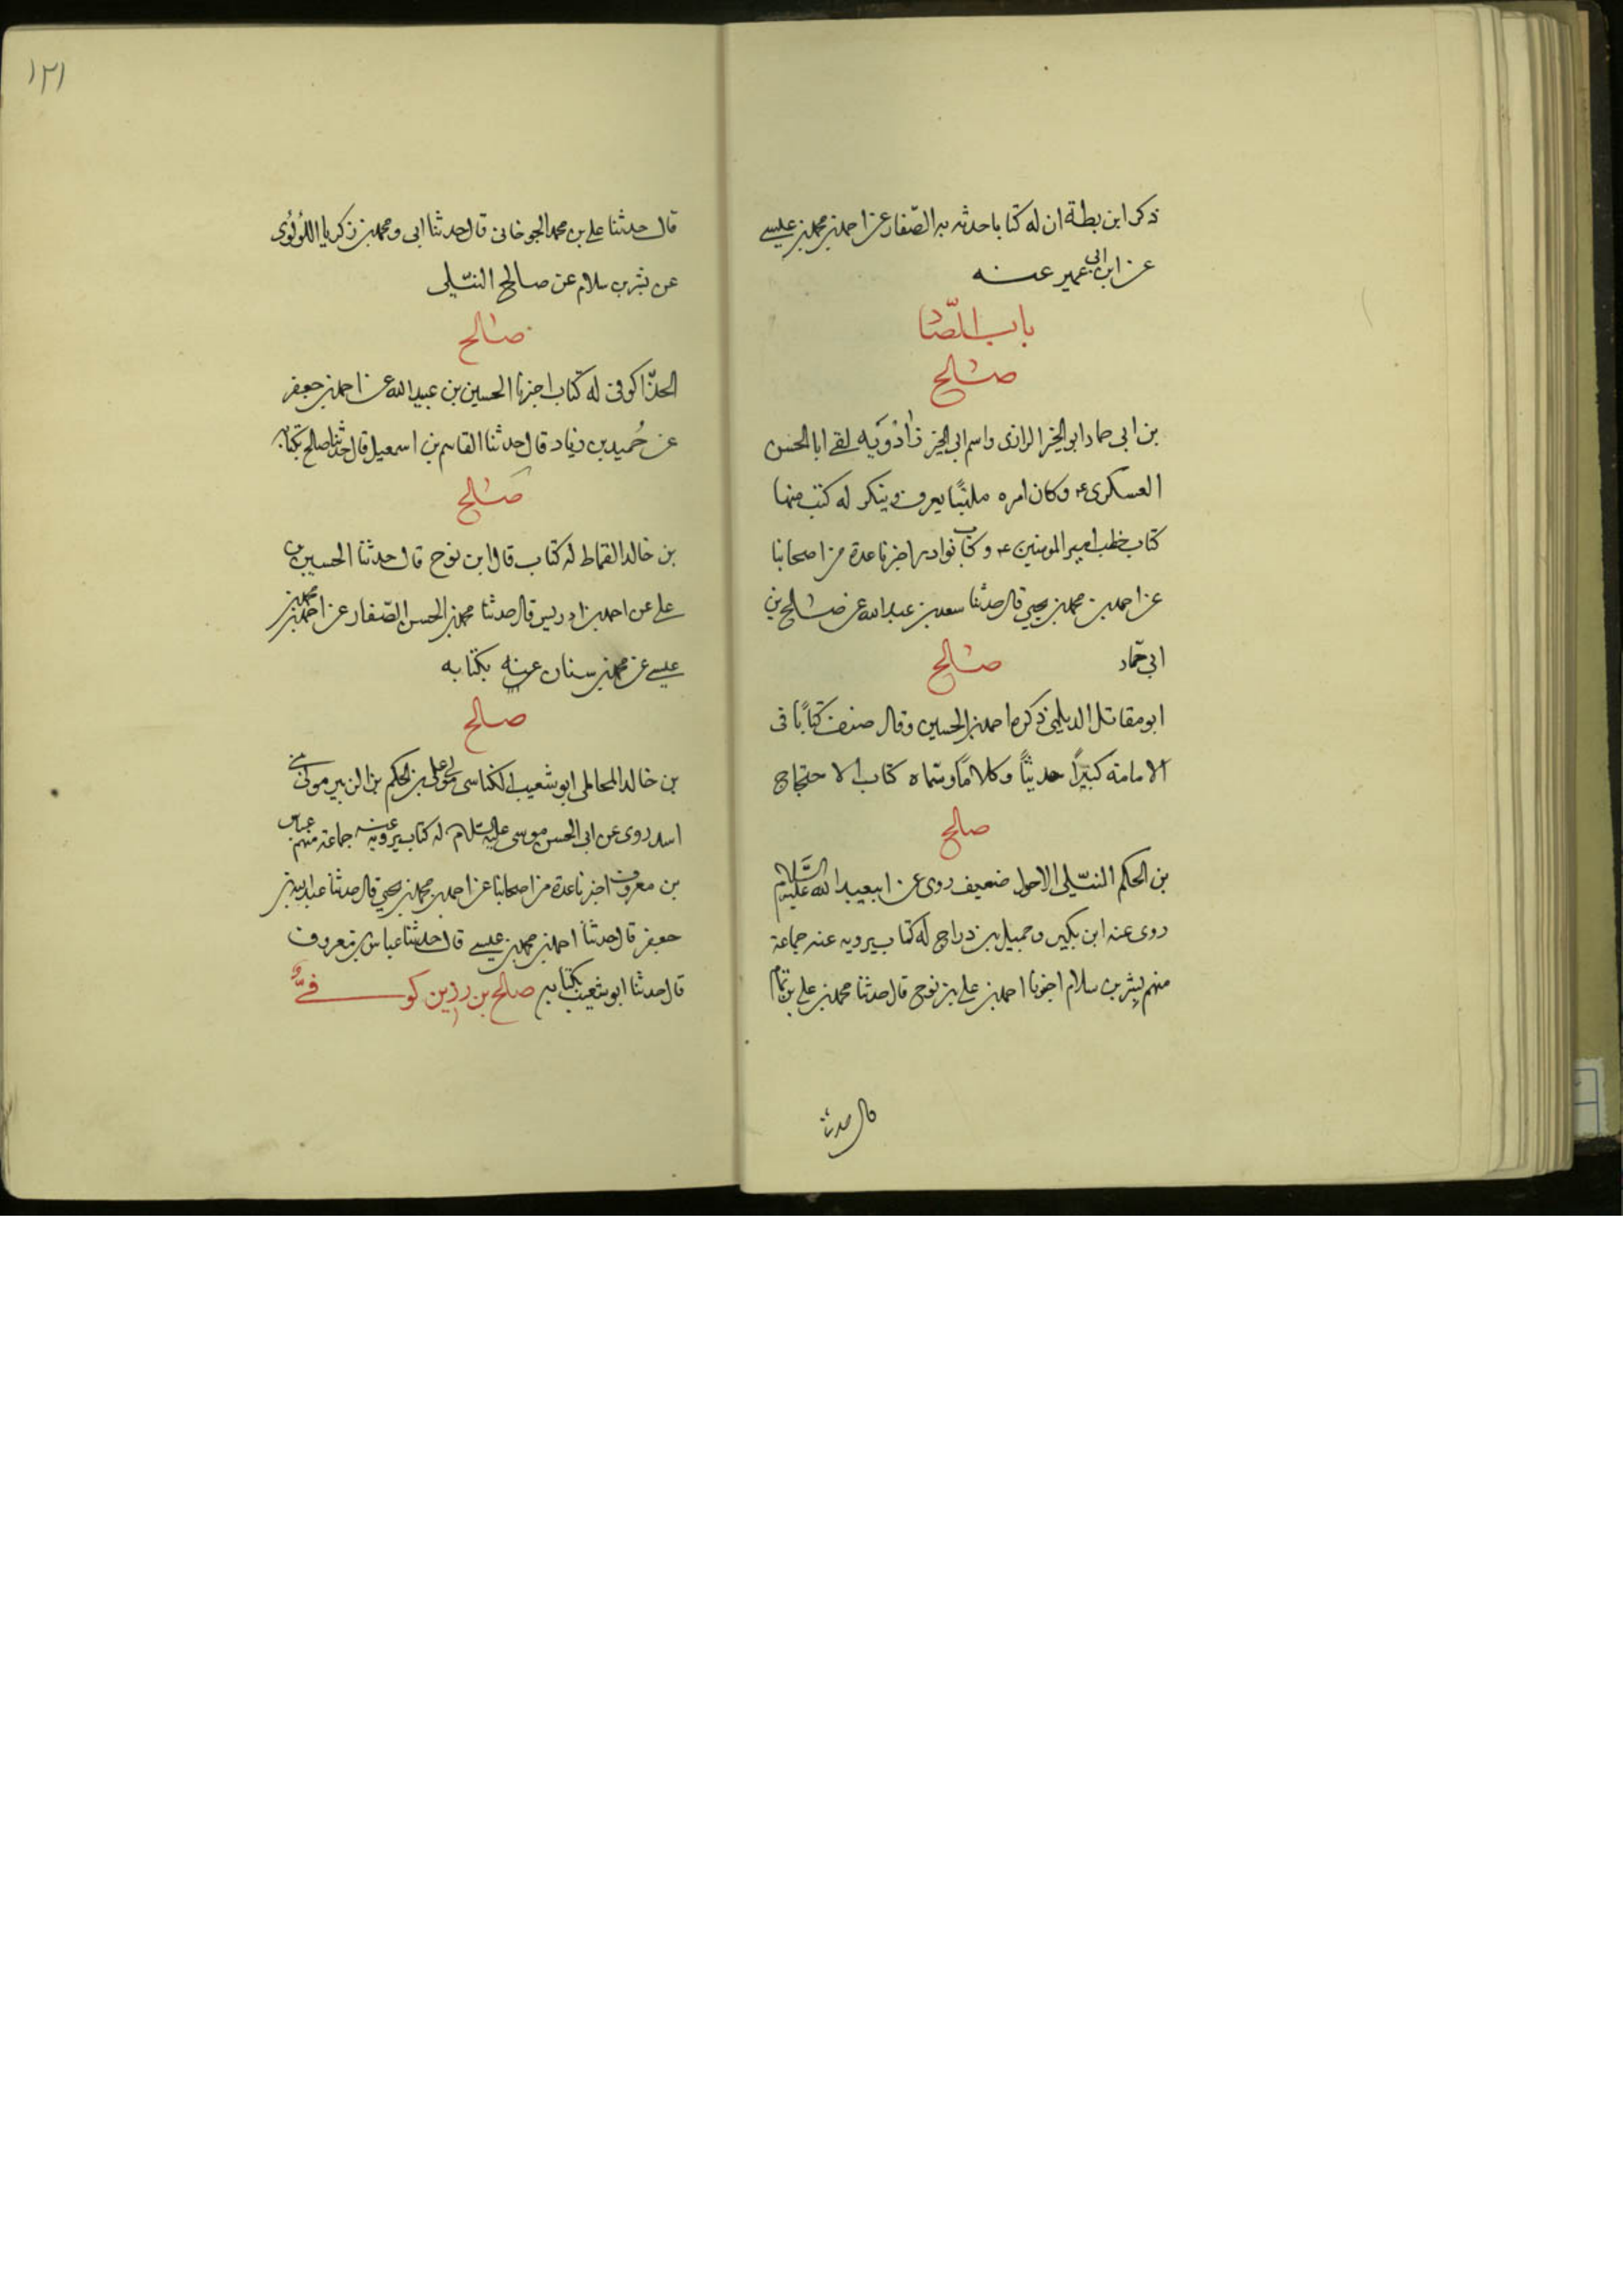 ذكر ابن بطة ان له كتابا حدثه به الصّفار عن احمد بن محمد بن عيسى
عن ابن ابى عمير عنه
باب الصّاد
صالح
بن ابى حماد ابو الخير الرازى واسم ابى الخير زاذويه لقى ابا الحسن
العسكرى ع وكان امره ملبّسًا يعرف وينكر له كتب منها
كتاب خطب امير المومنين ع وكتاب نوادر اخبرنا عدة من اصحابنا
عن احمد بن محمد بن يحيى قال حدثنا سعد بن عبد الله عن صالح بن
ابى حمّاد
صالح
ابو مقاتل الديلمى ذكره احمد بن الحسين وقال صنف كتابًا فى
الامامة كبيرًا حديثًا وكلامًا وسمّاه كتاب الاحتجاج
صالح
بن الحكم النيّلى الاحول ضعيف روى عن ابيعبد الله عليه السَّلام
روى عنه ابن بكير وجميل بن دراج له كتاب يرويه عنه جماعة
منهم بشر بن سلام اخبرنا احمد بن على بن نوح قال حدثنا محمد بن على بن تمام
قال حدثنا
١٢١
قال حدثنا على بن محمد الجرجانى قال حدثنا ابى ومحمد بن زكريا اللؤلؤى
عن بشر بن سلام عن صالح النيّلى
صالح
الحذّا كوفى له كتاب اخبرنا الحسين بن عبيد الله عن احمد بن جعفر
عن حُميد بن زياد قال حدثنا القاسم بن اسمعيل قال حدثنا صالح بكتابه
صالح
بن خالد القماط له كتاب قال ابن نوح قال حدثنا الحسين بن
على عن احمد بن ادريس قال حدثنا محمد بن الحسن الصّفار عن احمد بن محمد بن
عيسى عن محمد بن سنان عنه بكتابه
صالح
بن خالد المحاملى ابو شعيب الكناسى مولى على بن الحكم بن الزبير مولى بنى
اسد روى عن ابى الحسن موسى عليه السّلام له كتاب يرويه عنه جماعة منهم عباس
بن معروف اخبرنا عدة من اصحابنا عن احمد بن محمد بن يحيى قال حدثنا عبد الله بن
جعفر قال حدثنا احمد بن محمد بن عيسى قال حدثنا عباس بن معروف
قال حدثنا ابو شعيب بكتابه صالح بن رزين كوفىٌّ